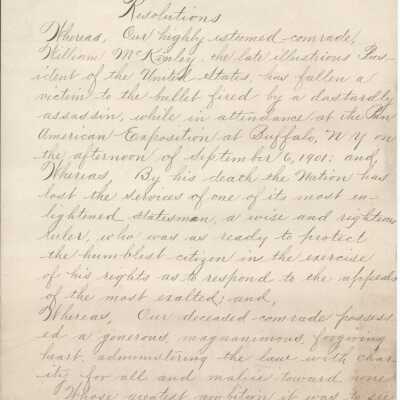 Resolutions
Whereas, Our highly esteemed comrade,
William McKinley, the late illustrious Pres-
ident of the United States, has fallen a
victim to the bullet fired by a dastardly
assassin, while in attendance at the Pan
American Exposition at Buffalo, N Y on
the afternoon of September 6, 1901; and,
Whereas, By his death the Nation has
lost the services of one of its most en-
lightened statesman, a wise and righteous
ruler, who was as ready to protect
the humblest citizen in the exercise
of his rights as to respond to the appeals
of the most exalted; and,
Whereas, Our deceased comrade possess-
ed a generous, magnanimous, forgiving
heart, administering the law with char-
ity for all and malice toward none
Whose greatest ambition it was to see